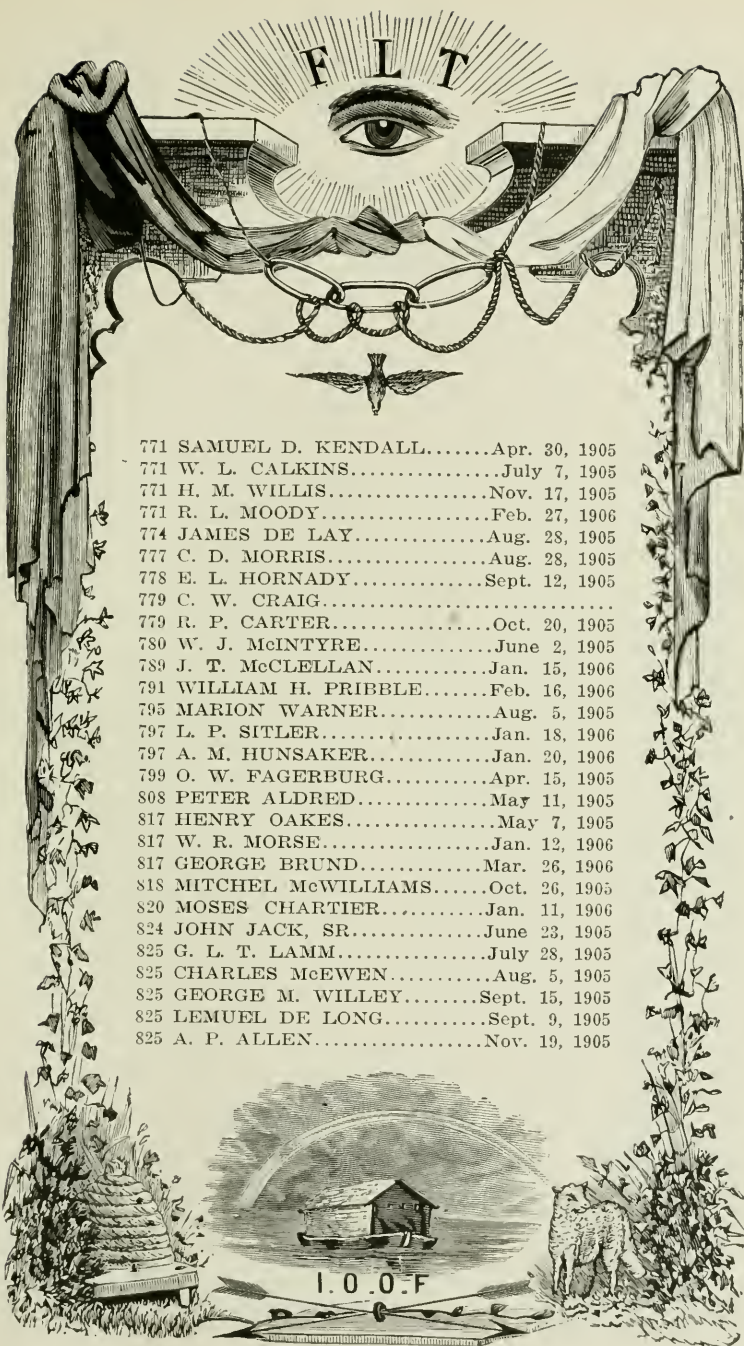 F L T
771 SAMUEL D. KENDALL.......Apr. 30, 1905
771 W. L. CALKINS................July 7, 1905
771 H. M. WILLIS.................Nov. 17, 1905
771 R. L. MOODY..................Feb. 27, 1906
774 JAMES DE LAY................Aug. 28, 1905
777 C. D. MORRIS.................Aug. 28, 1905
778 E. L. HORNADY...............Sept. 12, 1905
779 C. W. CRAIG....................................
779 R. P. CARTER.................Oct. 20, 1905
780 W. J. McINTYRE...............June 2, 1905
789 J. T. McCLELLAN.............Jan. 15, 1906
791 WILLIAM H. PRIBBLE.......Feb. 16, 1906
795 MARION WARNER.............Aug. 5, 1905
797 L. P. SITLER....................Jan. 18, 1906
797 A. M. HUNSAKER..............Jan. 20, 1906
799 O. W. FAGERBURG............Apr. 15, 1905
808 PETER ALDRED................May 11, 1905
817 HENRY OAKES..................May 7, 1905
817 W. R. MORSE...................Jan. 12, 1906
817 GEORGE BRUND...............Mar. 26, 1906
818 MITCHEL McWILLIAMS......Oct. 26, 1905
820 MOSES CHARTIER.............Jan. 11, 1906
824 JOHN JACK, SR................June 23, 1905
825 G. L. T. LAMM..................July 28, 1905
825 CHARLES McEWEN............Aug. 5, 1905
825 GEORGE M. WILLEY.........Sept. 15, 1905
825 LEMUEL DE LONG.............Sept. 9, 1905
825 A. P. ALLEN.....................Nov. 19, 1905
I.O.O.F